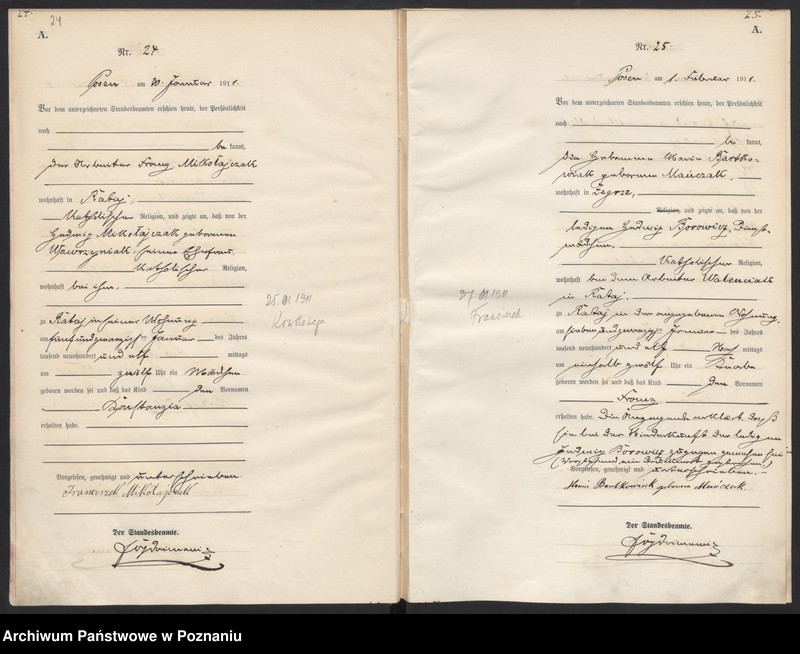 24
A.
Nr. 24
Posen am 30. Januar 1911.
Vor dem unterzeichneten Standesbeamten erschien heute, der Persönlichkeit
nach
be kannt,
der Arbeiter Franz Mikołajczak
wohnhaft in Rataj,
katholischer Religion, und zeigte an, daß von der
Hedwig Mikołajczak geborenen
Wawrzyniak, seiner Ehefrau,
katholischer Religion,
wohnhaft bei ihm,
zu Rataj in seiner Wohnung
am fünfundzwanzigsten Januar des Jahres
tausend neunhundert und elf mittags
um zwölf Uhr ein Mädchen
geboren worden sei und daß das Kind den Vornamen
Konstanzia
erhalten habe.
Vorgelesen, genehmigt und unterschrieben
Franciszek Mikołajczak
Der Standesbeamte.
25.01.1911
25.
A.
Nr. 25
Posen am 1. Februar 1911.
Vor dem unterzeichneten Standesbeamten erschien heute, der Persönlichkeit
nach
be kannt,
die Hebamme Maria Bartko-
wiak geborene Mańczak,
wohnhaft in Żegrze,
Religion, und zeigte an, daß von der
ledigen Hedwig Borowicz, Dienst-
mädchen,
katholischer Religion,
wohnhaft bei dem Arbeiter
in Rataj,
zu Rataj in der angegebenen Wohnung,
am siebenundzwanzigsten Januar des Jahres
tausend neunhundert und elf Nach mittags
um einhalb zwölf Uhr ein Knabe
geboren worden sei und daß das Kind den Vornamen
Franz
erhalten habe. Die Anzeigende erklärt, daß
sie bei der Niederkunft der ledigen
Hedwig Borowicz zugegen gewesen sei
Vorgelesen, genehmigt und unterschrieben.
Maria Bartkowiak geborene Mańczak.
Der Standesbeamte.
27.01.1911
Franciszek
Archiwum Państwowe w Poznaniu